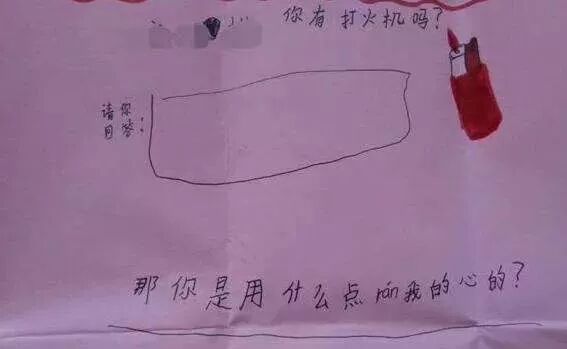 你有打火机吗?
请你
回答:
那你是用什么点rán我的心的?